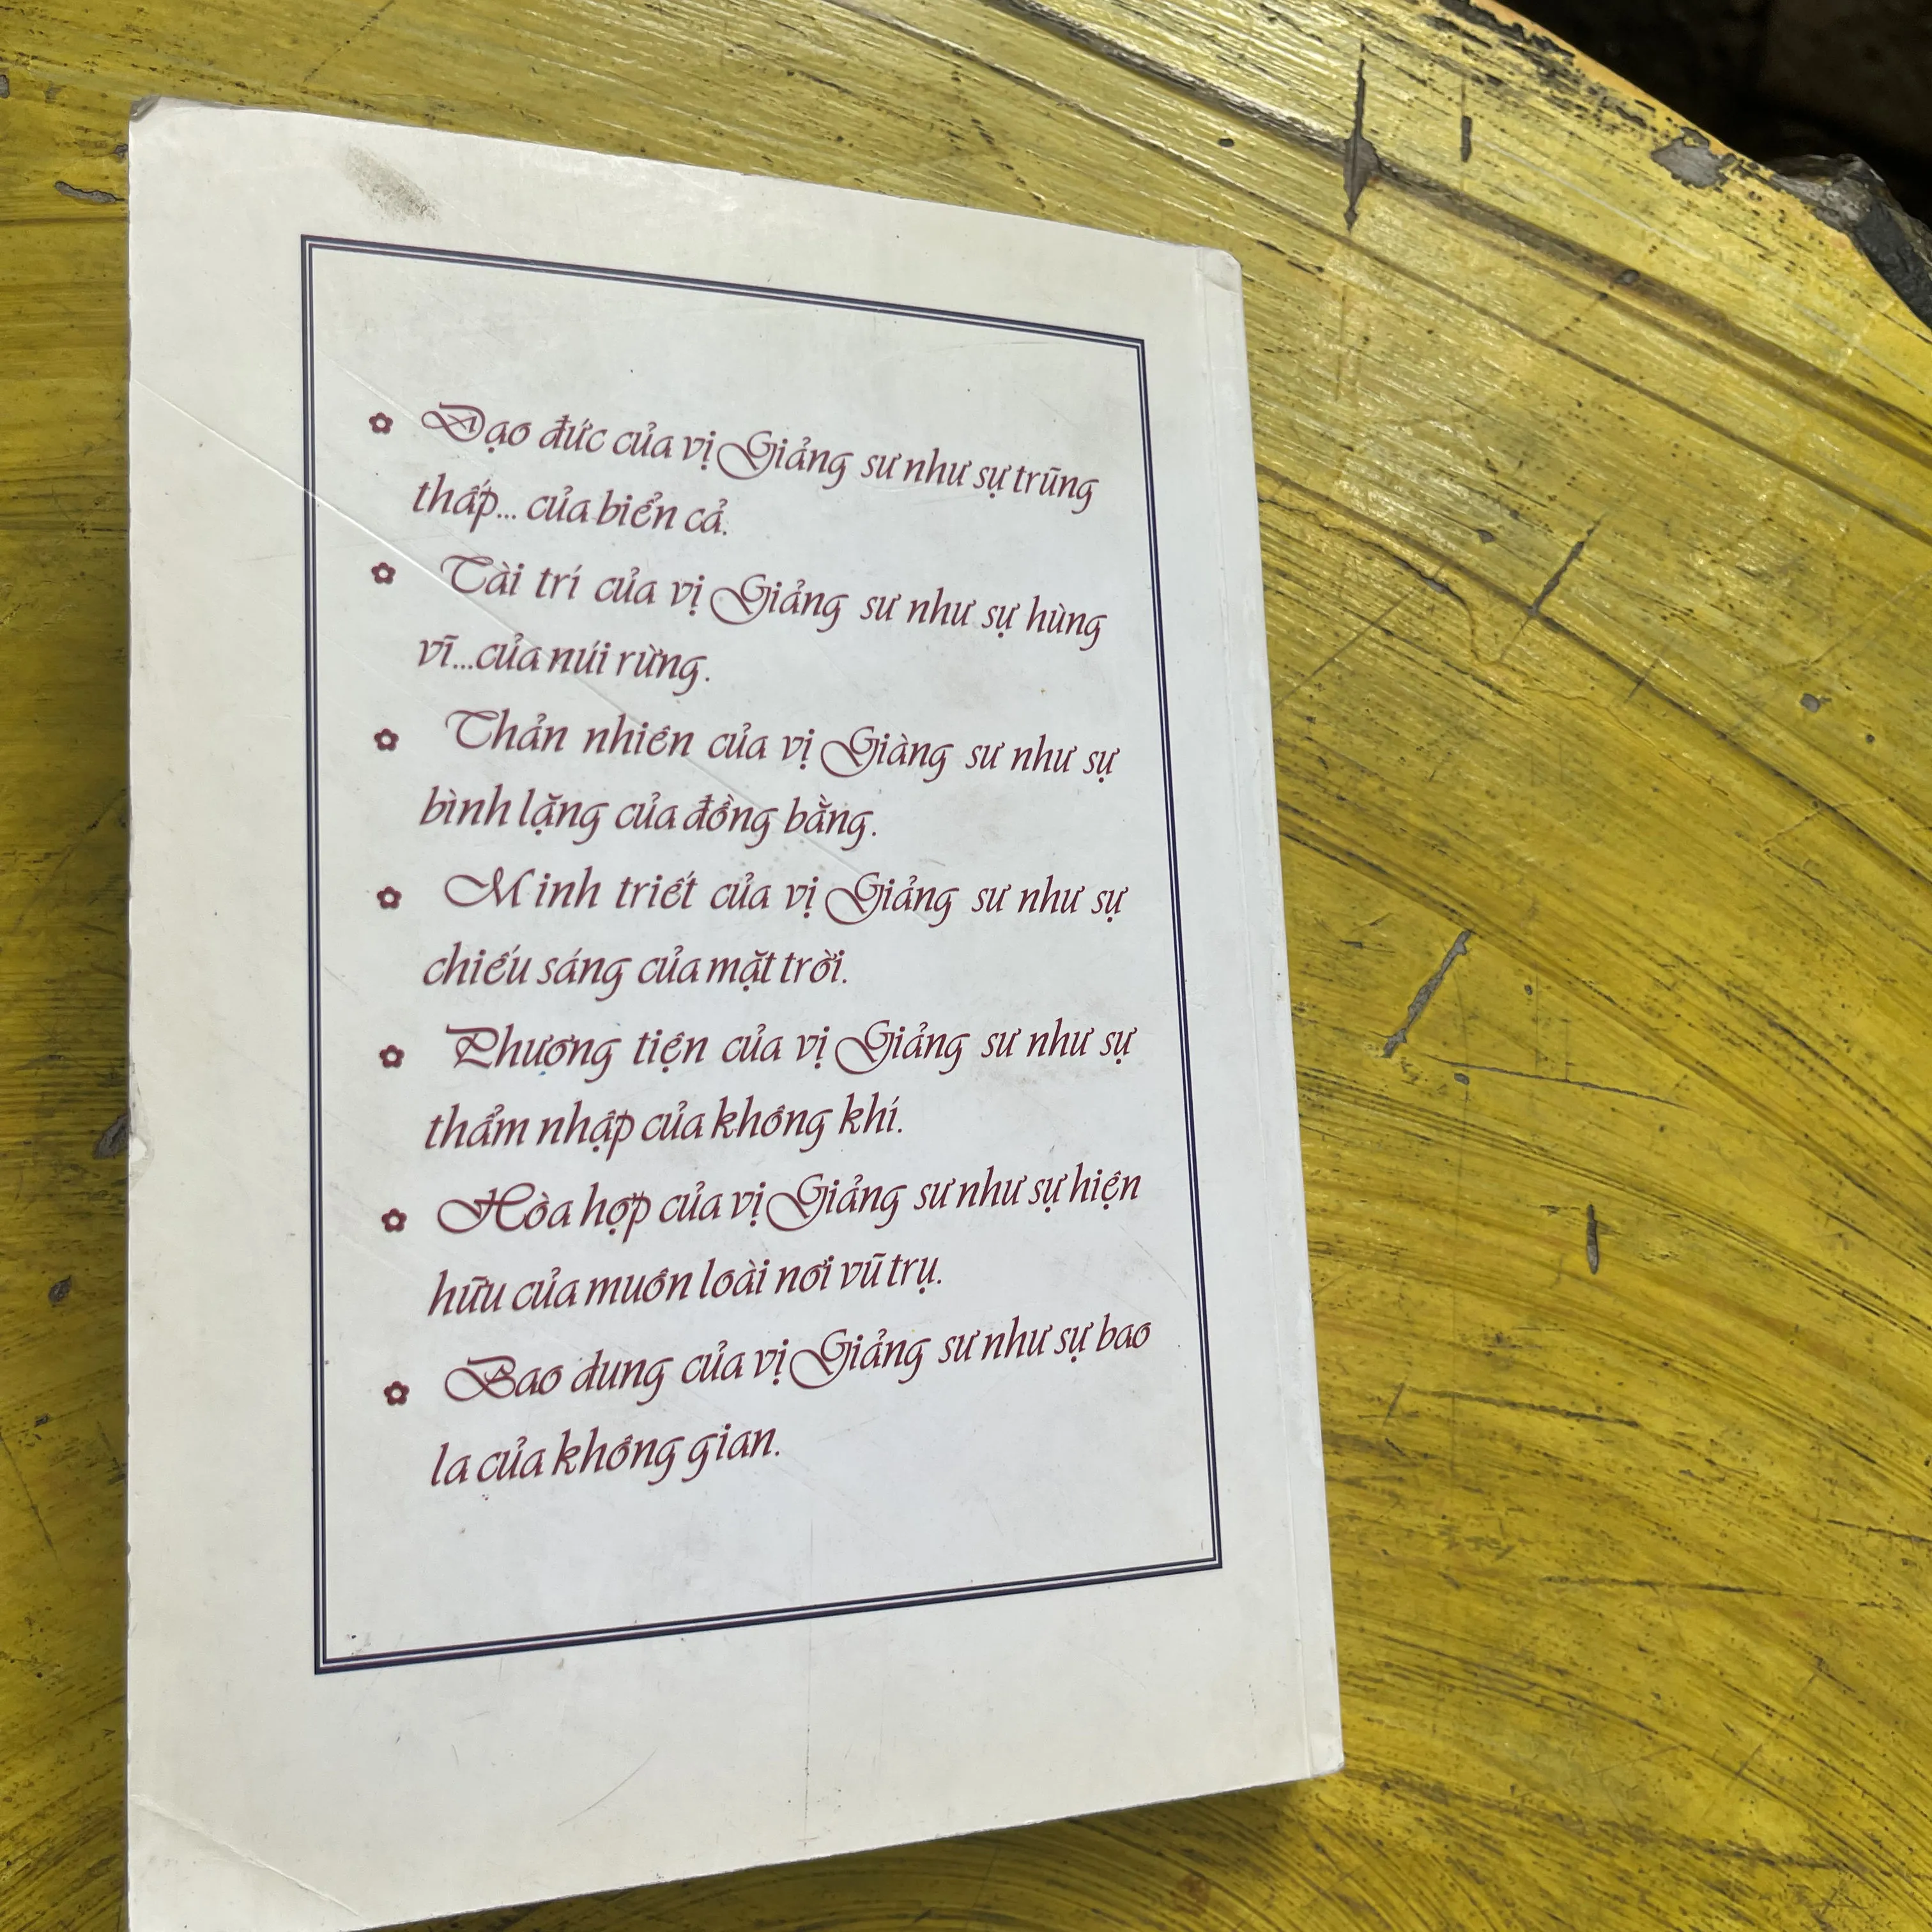 Đạo đức của vị Giảng sư như sự trũng
thấp... của biển cả.
Tài trí của vị Giảng sư như sự hùng
vĩ...của núi rừng.
Thản nhiên của vị Giàng sư như sự
bình lặng của đồng bằng.
Minh triết của vị Giảng sư như sự
chiếu sáng của mặt trời.
Phương tiện của vị Giảng sư như sự
thẩm nhập của không khí.
Hòa hợp của vị Giảng sư như sự hiện
hữu của muôn loài nơi vũ trụ.
Bao dung của vị Giảng sư như sự bao
la của không gian.